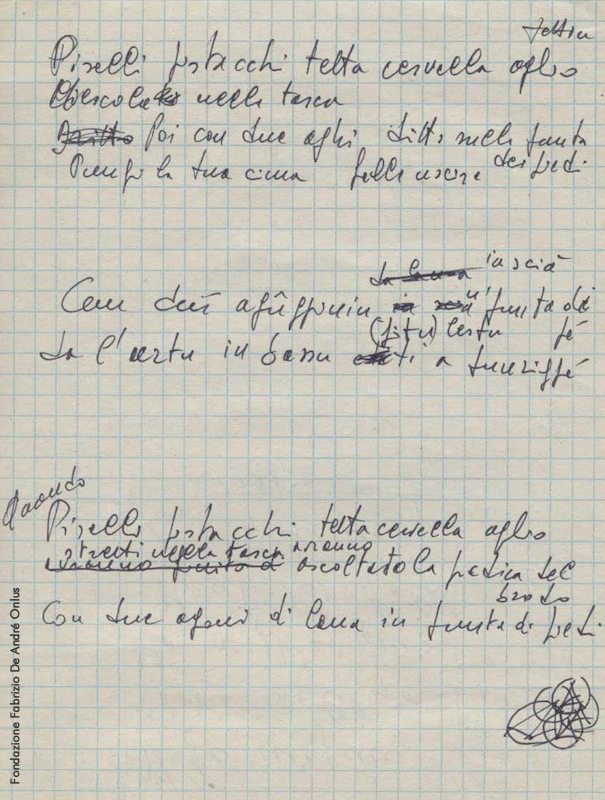 Piselli pistacchi tetta cervella aglio
Mescolati nella tasca
Poi con due aghi, ditto sulla punta
dei piedi
Pungi la tua cima falle uscire
in sciâ
Cun duî agûggiuin 'n' punta di
(fitu) lestu pê
da l'ertu in bassu ti a punziggé
Quando
Piselli pistacchi tetta cervella aglio
stretti nella tasca avranno
ascoltato la predica del
brodo
Con due agoni di lana in punta di piedi
Fondazione Fabrizio De André Onlus